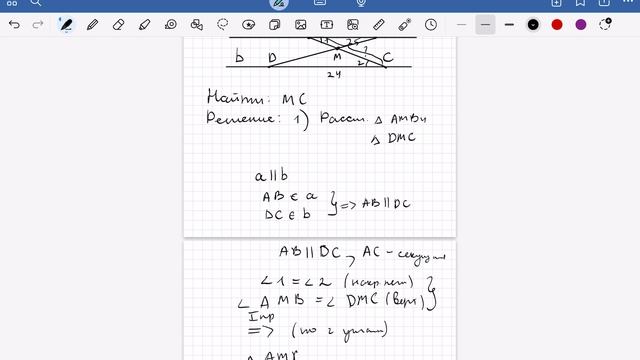 25
b D M C
24
Найти: MC
Решение: 1) Рассм. △ AMB и
△ DMC
a || b
AB ∈ a
DC ∈ b } => AB || DC
AB || DC, AC - секущая
∠1 = ∠2 (накр леж)
∠ AMB = ∠ DMC (верт) }
Iпр
=> (по 2 углам)